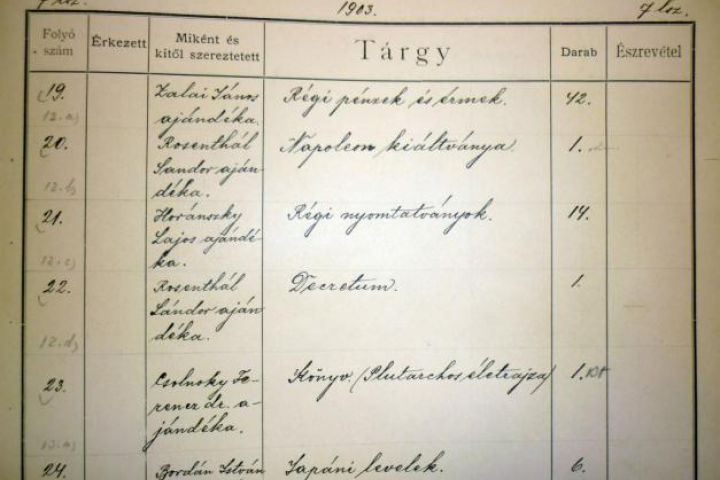 1903.
7 lsz.
Folyó szám
Érkezett
Miként és kitől szereztetett
Tárgy
Darab
Észrevétel
19.
Zalai János
Régi pénzek és érmek.
42.
12. a)
ajándéka.
20.
Rosenthál
Napoleon kiáltványa.
1.
Sandor aján
12. b)
déka.
21.
Horánszky
Régi nyomtatványok.
14.
Lajos ajándé-
12. c)
ka.
22.
Rosenthál
Decretum.
1.
Sándor aján
12. d)
déka.
23.
Csolnoky Fe-
Könyv. (Plutarchos életrajza)
1.
rencz dr. a-
jándéka.
24.
Bordán István
Japáni levelek.
6.